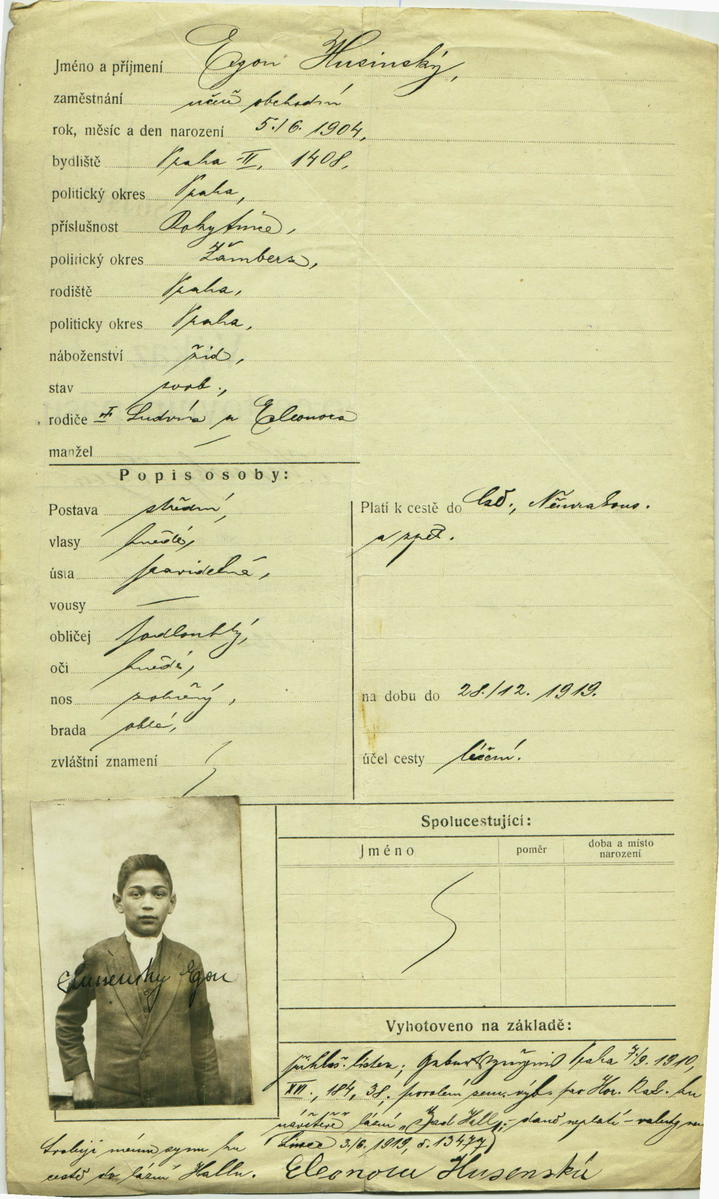 Jméno a příjmení Egon Husinský,
zaměstnání učeň obchodní
rok, měsíc a den narození 5./6. 1904,
bydliště Praha II, 1408,
politický okres Praha,
příslušnost Rokytnice,
politický okres Žamberk,
rodiště Praha,
politicky okres Praha,
náboženství žid,
stav svob.,
rodiče Ludvík a Eleonora
manžel —
Popis osoby:
Postava střední,
vlasy hnědé,
ústa pravidelná,
vousy —
obličej podlouhlý,
oči hnědé,
nos
brada oblá,
zvláštní znamení
Platí k cestě do
a zpět.
na dobu do 28./12. 1919.
účel cesty léčení.
Spolucestující:
Jméno poměr doba a místo narození
Husensky Egon
Vyhotoveno na základě:
Praha 7/9. 1910,
XVI., 184, 38,
lázní „Bad Hall“, daně neplatí –
Linec 3/6. 1919, č. 13477)
mému synu ku
cestě do lázní Hallu.
Eleonora Husenská